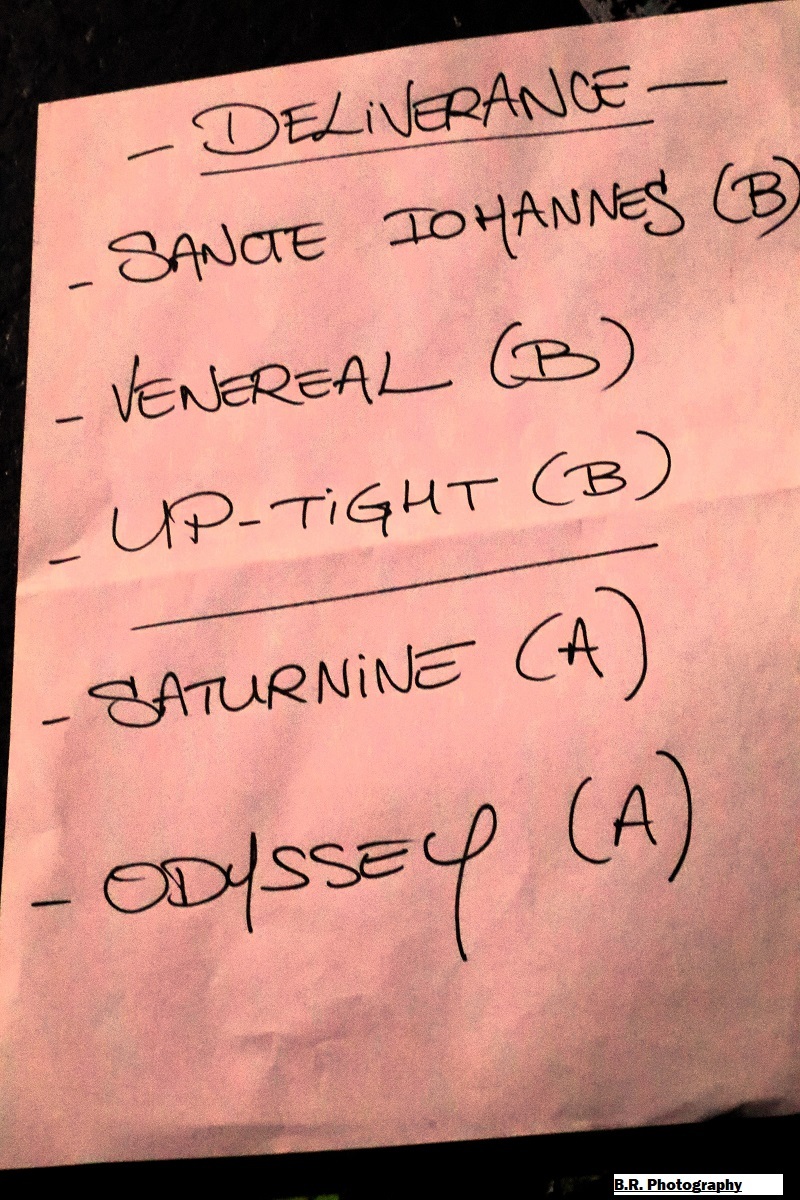 - DELIVERANCE -
- SANCTE IOHANNES (B)
- VENEREAL (B)
- UP-TIGHT (B)
- SATURNINE (A)
- ODYSSEY (A)
B.R. Photography